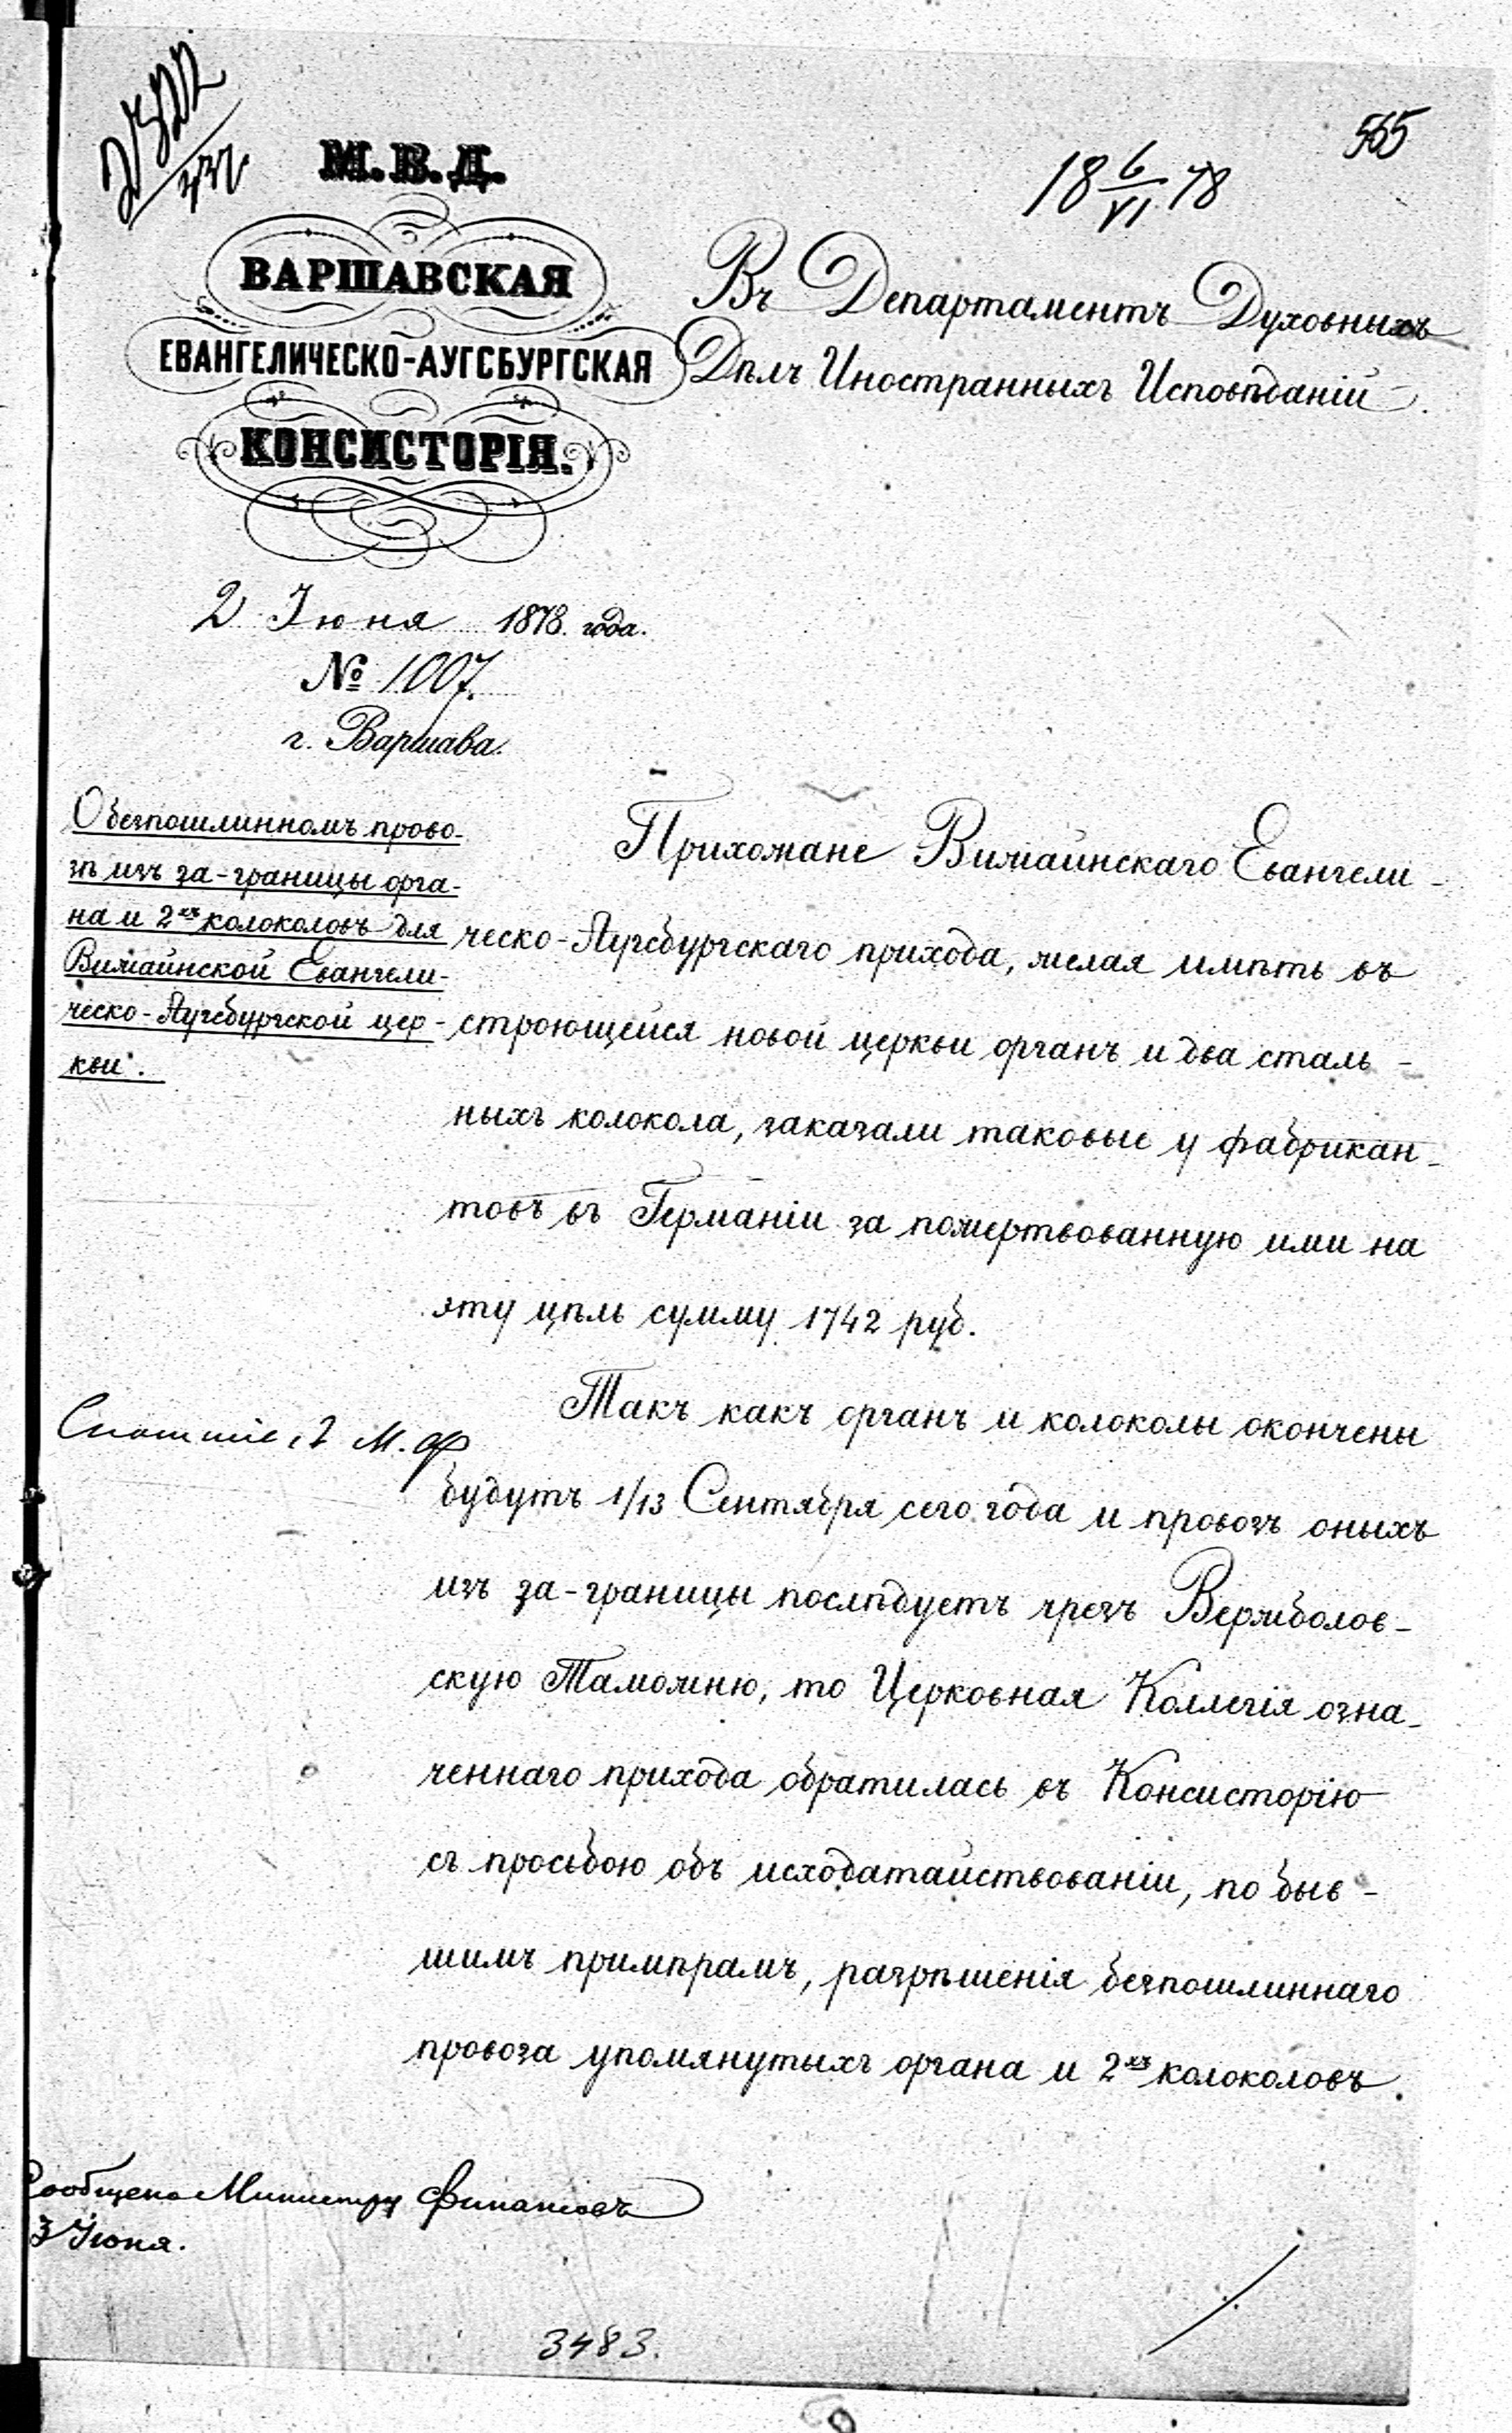 565
18 6/VI 78
М.В.Д.
ВАРШАВСКАЯ
ЕВАНГЕЛИЧЕСКО-АУГСБУРГСКАЯ
КОНСИСТОРІЯ.
2 Іюня 1878 года.
№ 1007.
г. Варшава.
Въ Департаментъ Духовныхъ
Дѣлъ Иностранныхъ Исповѣданій.
О безпошлинномъ прово-
зѣ изъ за-границы орга-
на и 2хъ колоколовъ для
Вижайнской Евангели-
ческо-Аугсбургской цер-
кви.
Прихожане Вижайнскаго Евангели-
ческо-Аугсбургскаго прихода, желая имѣть въ
строющейся новой церкви органъ и два сталь-
ныхъ колокола, заказали таковые у фабрикан-
товъ въ Германіи за пожертвованную ими на
эту цѣль сумму 1742 руб.
Такъ какъ органъ и колоколы окончены
будутъ 1/13 Сентября сего года и провозъ оныхъ
изъ за-границы послѣдуетъ чрезъ Вержболов-
скую Таможню, то Церковная Коллегія озна-
ченнаго прихода обратилась въ Консисторію
съ просьбою объ исходатайствованіи, по быв-
шимъ примѣрамъ, разрѣшенія безпошлиннаго
провоза упомянутыхъ органа и 2хъ колоколовъ.
М. Ф
Сообщено Министру Финансовъ
3 Іюня.
3483.